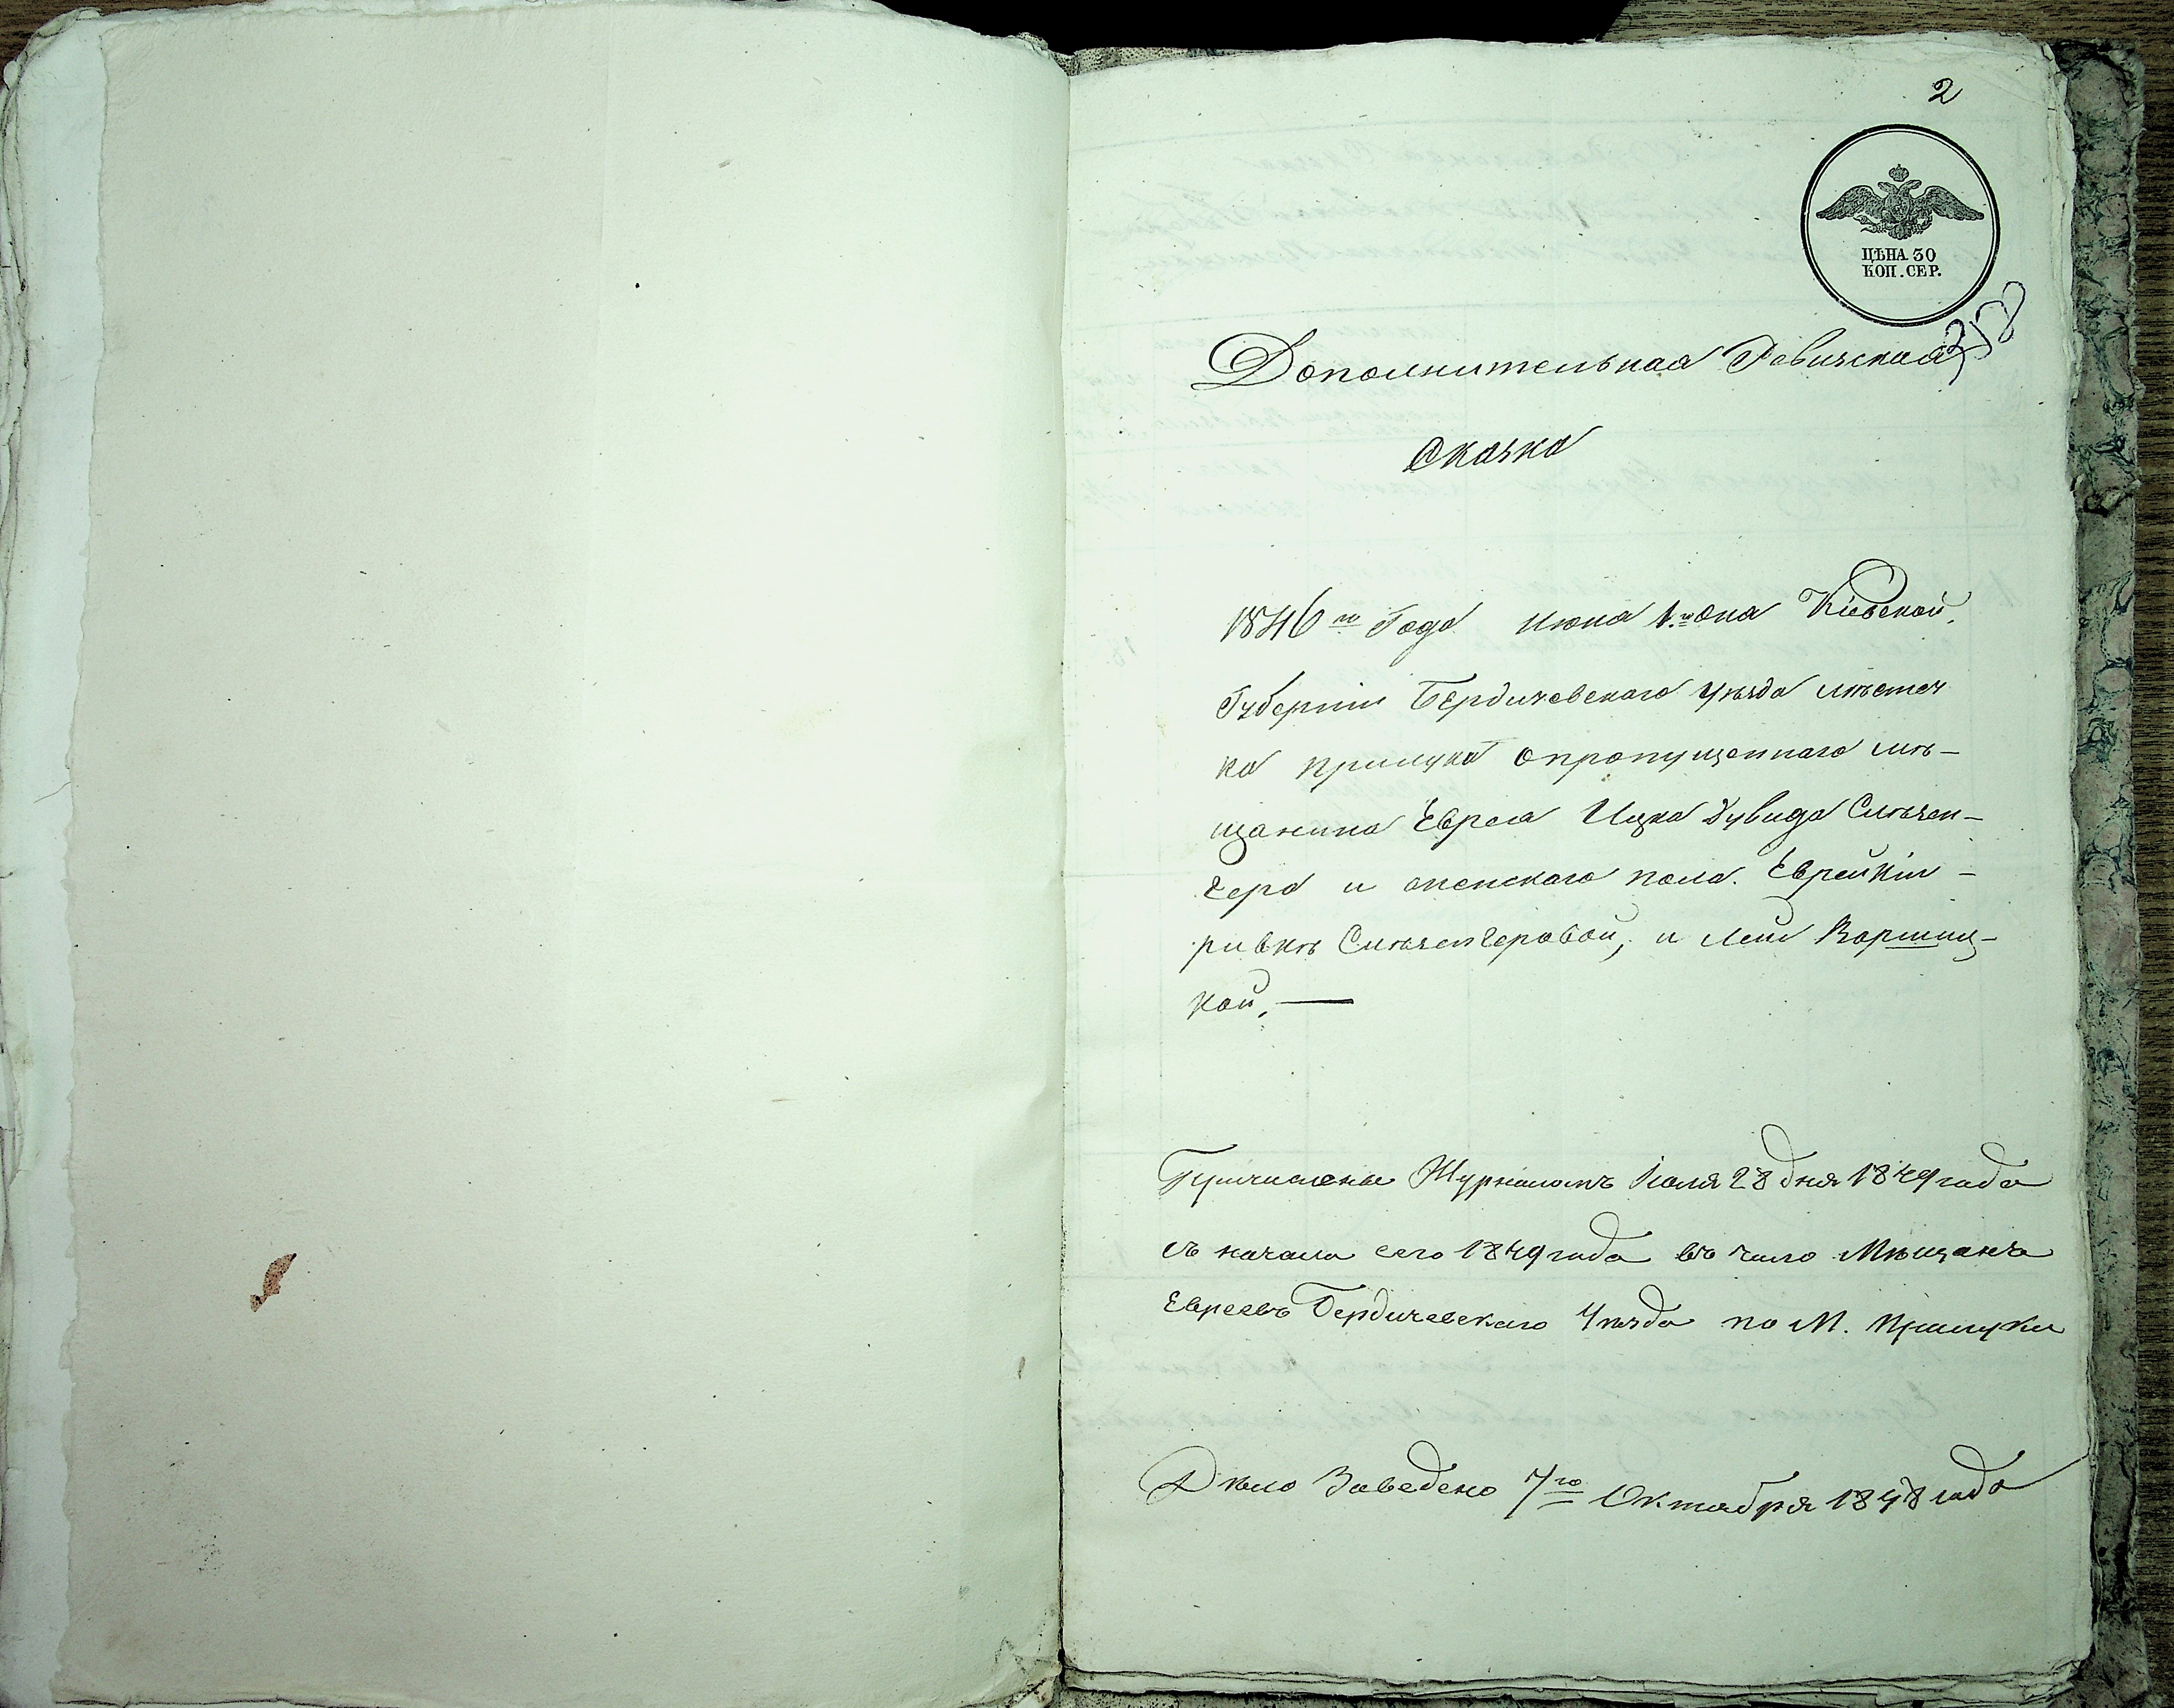 2
ЦѢНА 30
КОП. СЕР.
Дополнительная Ревизская
Сказка
1846го Года Июня 1го дня Кіевской
Губерніи Бердичевского уезда местеч
ка прилука опропущеннаго мѣ-
щанина Еврея Ицка Дувида
и женскаго пола. Еврейкіи -
ривкѣ и Леи Варшиц-
кой, —
Причислены Журналомъ Іюля 28 дня 1849 года
съ начала сего 1849 года въ число Мѣщанъ
Евреевъ Бердичевскаго Уѣзда по М. Прилуки
Дѣло Заведено 7го Октября 1848 года